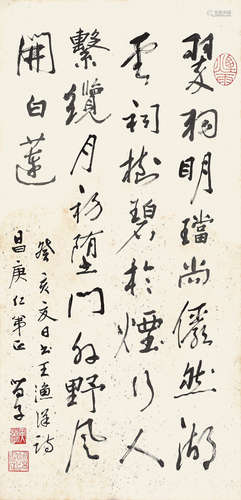 翠羽明璫尚儼然湖
雲祠樹碧於煙行人
繫纜月初墮門外野風
開白蓮
癸亥夏日书王漁洋詩
昌庚仁弟正